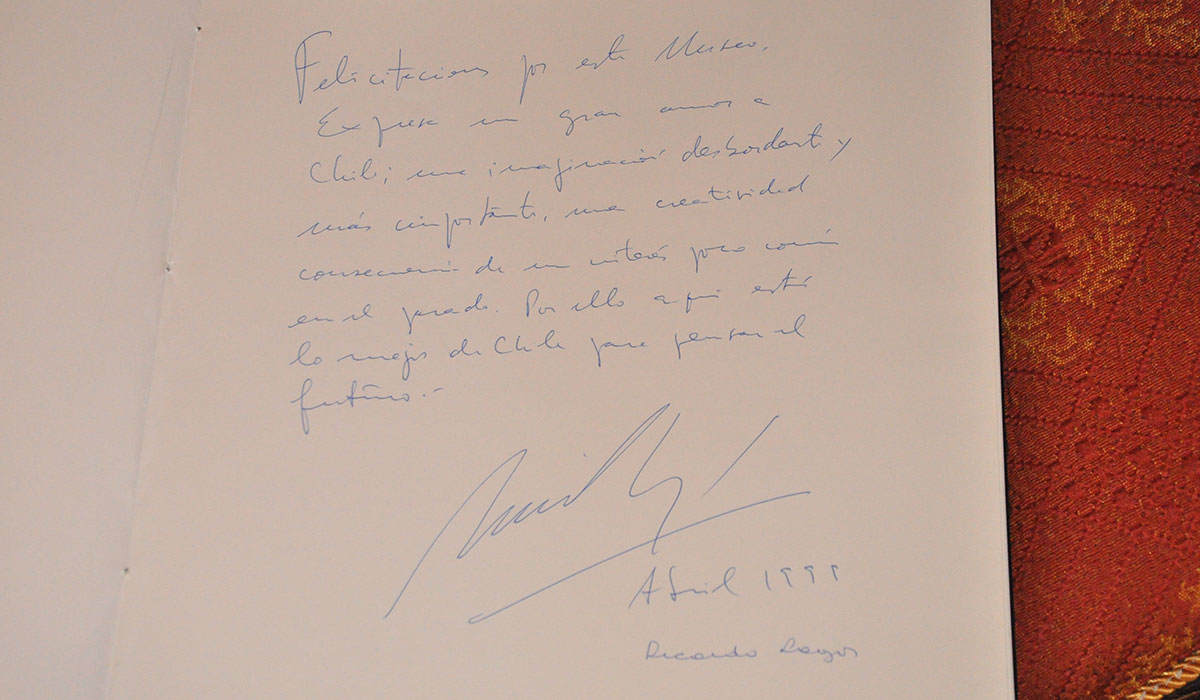 Felicitaciones por este Museo.
Expresa un gran amor a
Chile; una imaginación desbordante y
más importante, una creatividad
consecuencia de un interés poco común
en el pasado. Por ello aquí está
lo mejor de Chile para pensar el
futuro.-
Abril 1999
Ricardo Lagos